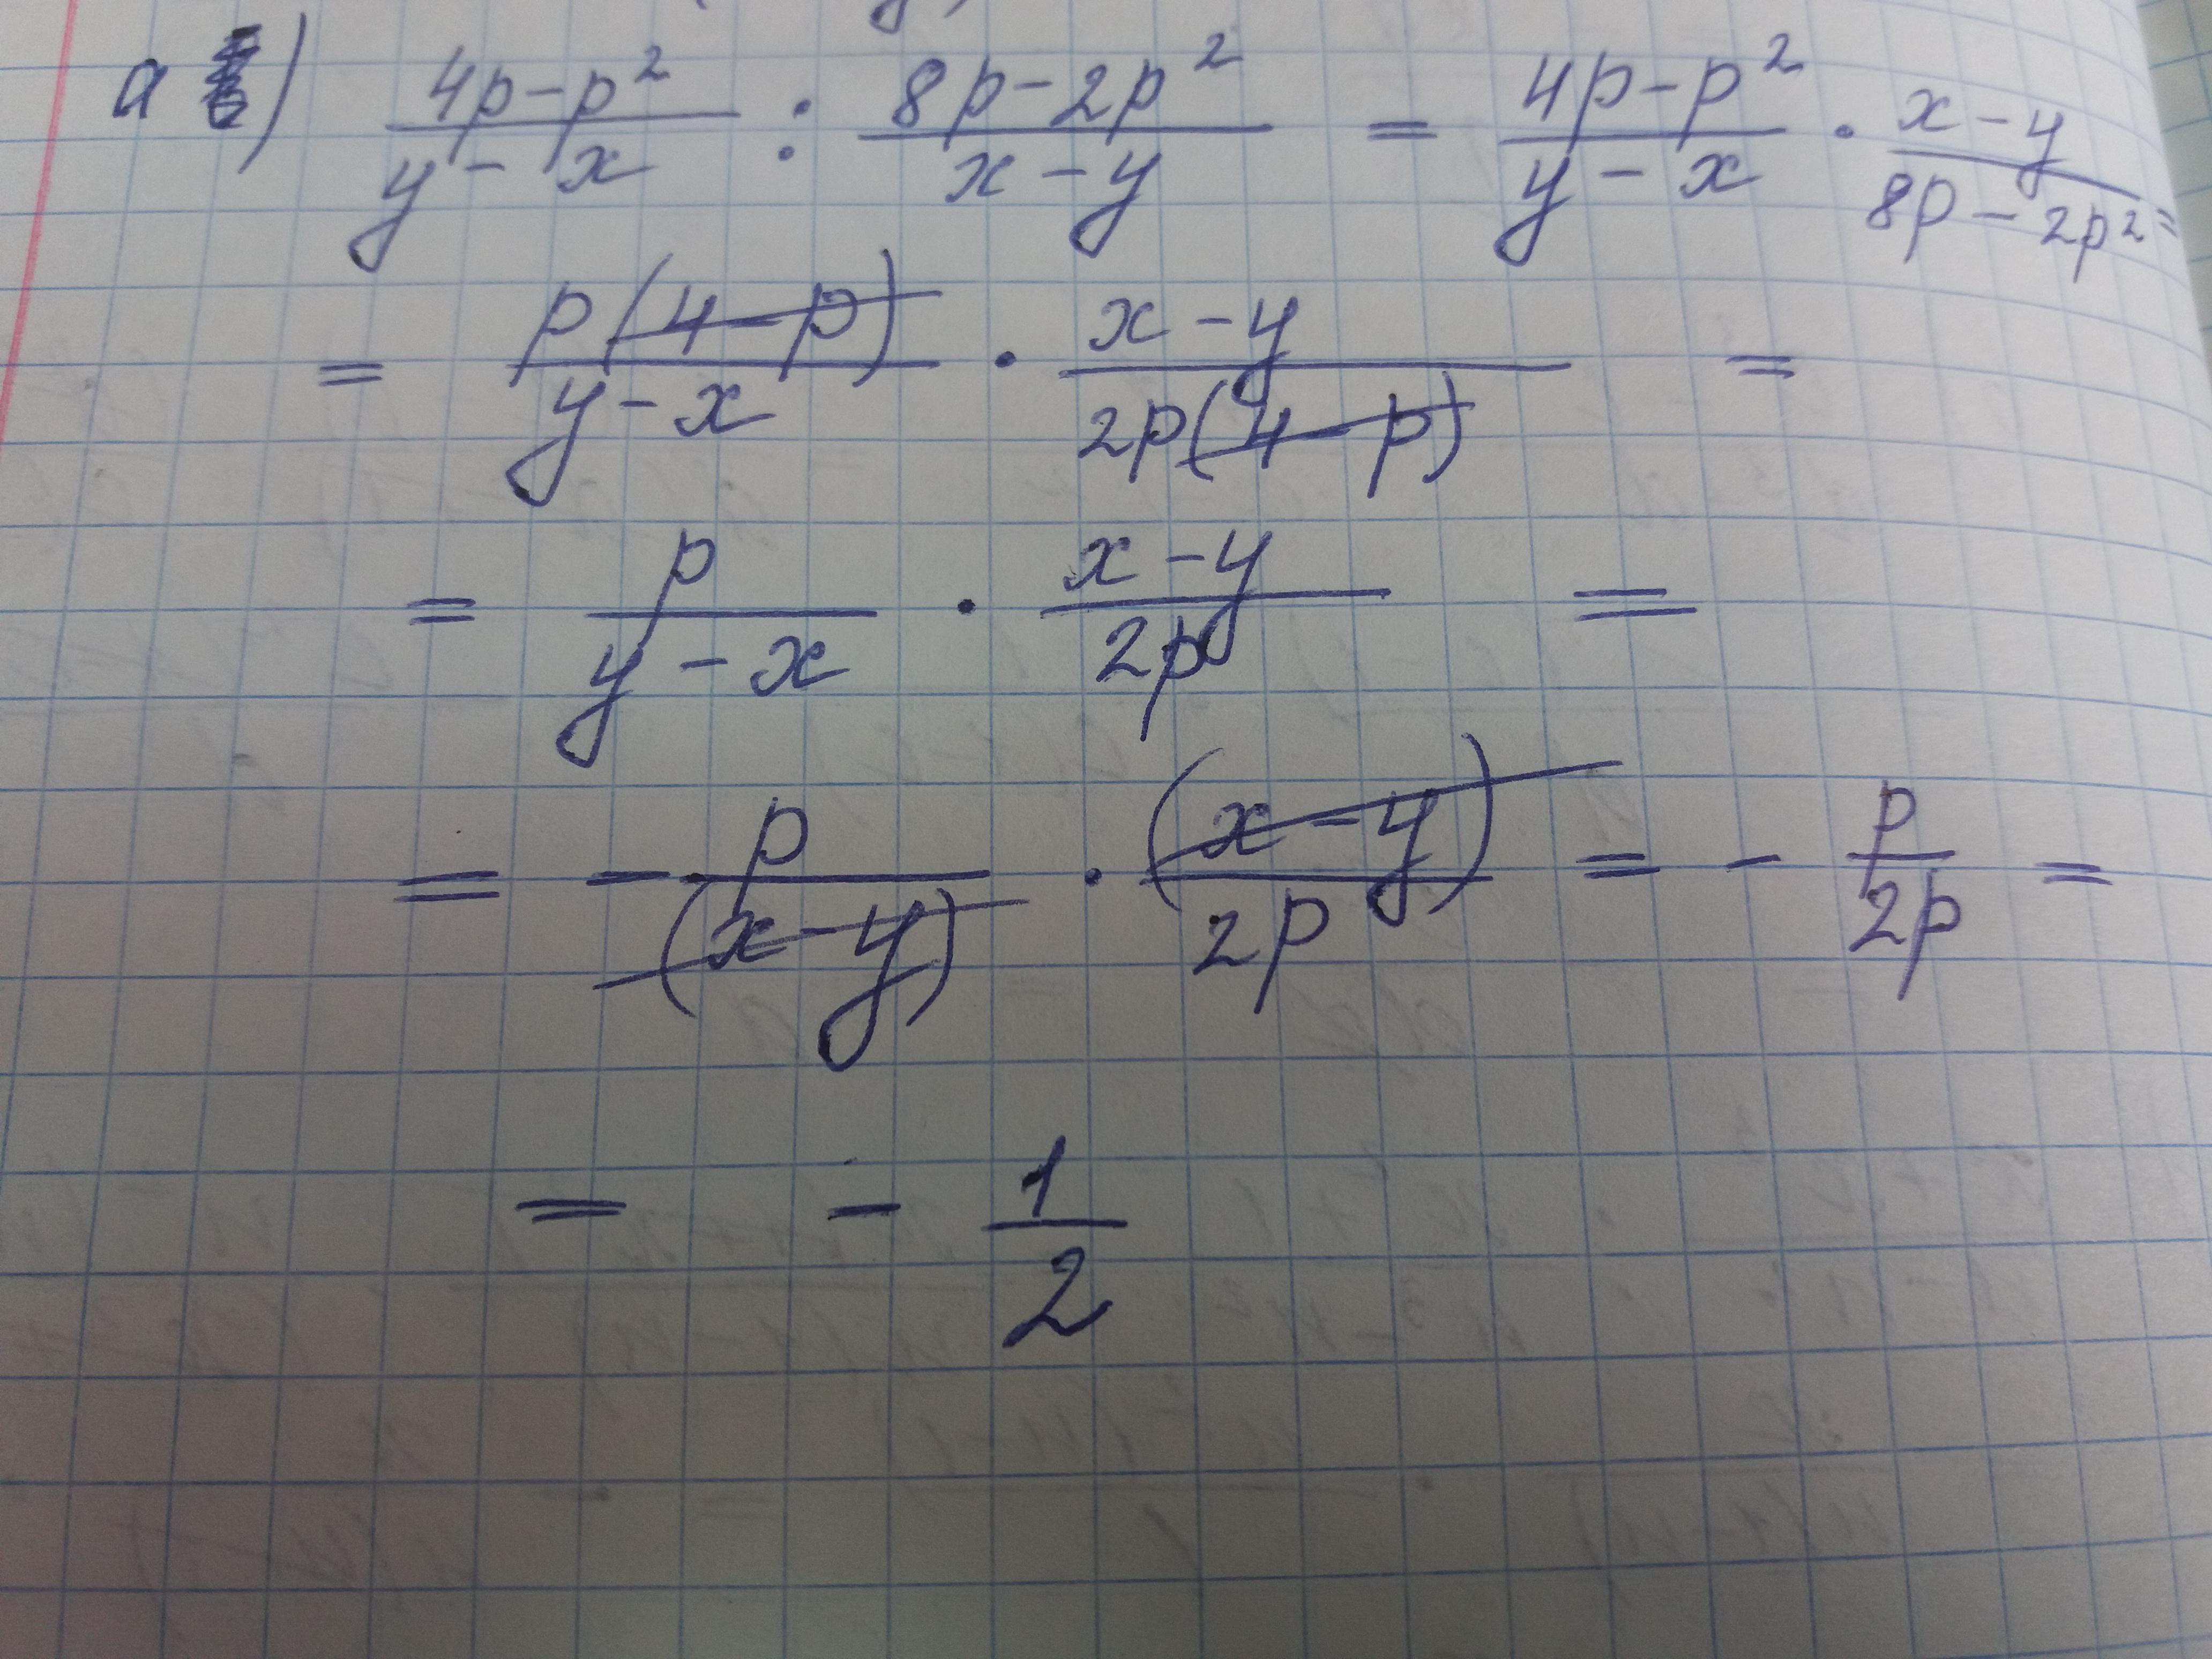 a) (4p-p²)/(y-x) : (8p-2p²)/(x-y) = (4p-p²)/(y-x) · (x-y)/(8p-2p²) =
= p(4-p)/(y-x) · (x-y)/(2p(4-p)) =
= p/(y-x) · (x-y)/(2p) =
= -p/(x-y) · (x-y)/(2p) = -p/(2p) =
= -1/2